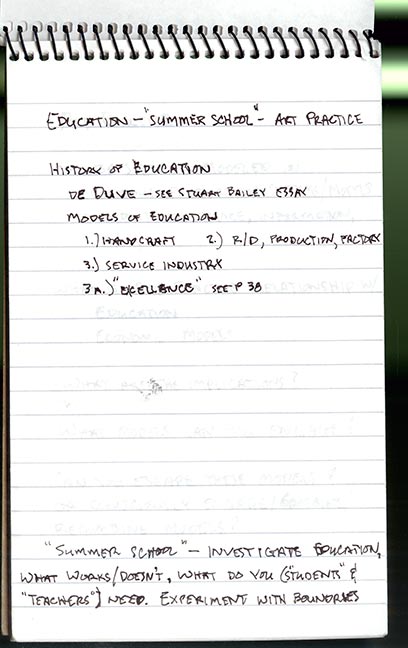 EDUCATION - "SUMMER SCHOOL" - ART PRACTICE
HISTORY OF EDUCATION
DE DUVE - SEE STUART BAILEY ESSAY
MODELS OF EDUCATION
1.) HANDCRAFT 2.) R/D, PRODUCTION, FACTORY
3.) SERVICE INDUSTRY
3A.) "EXCELLENCE" SEE P 38
"SUMMER SCHOOL" - INVESTIGATE EDUCATION,
WHAT WORKS/DOESN'T, WHAT DO YOU ("STUDENTS" &
"TEACHERS") NEED. EXPERIMENT WITH BOUNDRIES